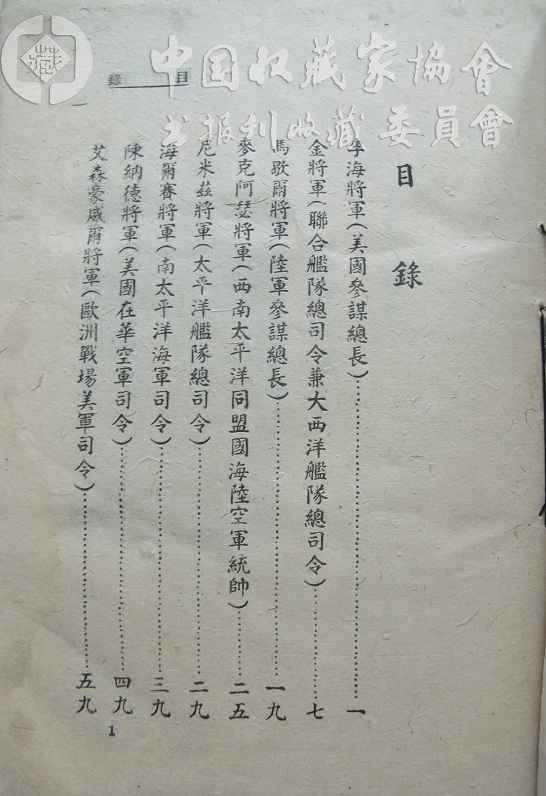 中国收藏家協會
书报刊收藏委員會
目錄
目錄
李海將軍(美國參謀總長)……一
金將軍(聯合艦隊總司令兼大西洋艦隊總司令)……七
馬歇爾將軍(陸軍參謀總長)……一九
麥克阿瑟將軍(西南太平洋同盟國海陸空軍統帥)……二五
尼米茲將軍(太平洋艦隊總司令)……二九
海爾賽將軍(南太平洋海軍司令)……三九
陳納德將軍(美國在華空軍司令)……四九
艾森豪威爾將軍(歐洲戰場美軍司令)……五九
1